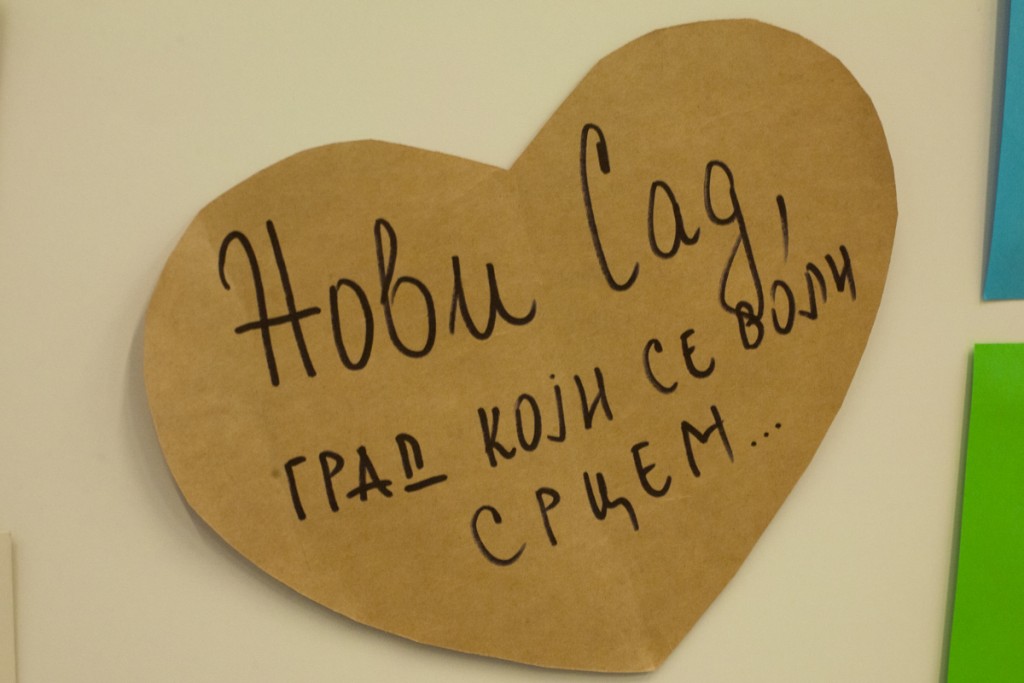 Нови Сад,
ГРАД КОЈИ СЕ ВОЛИ
СРЦЕМ...